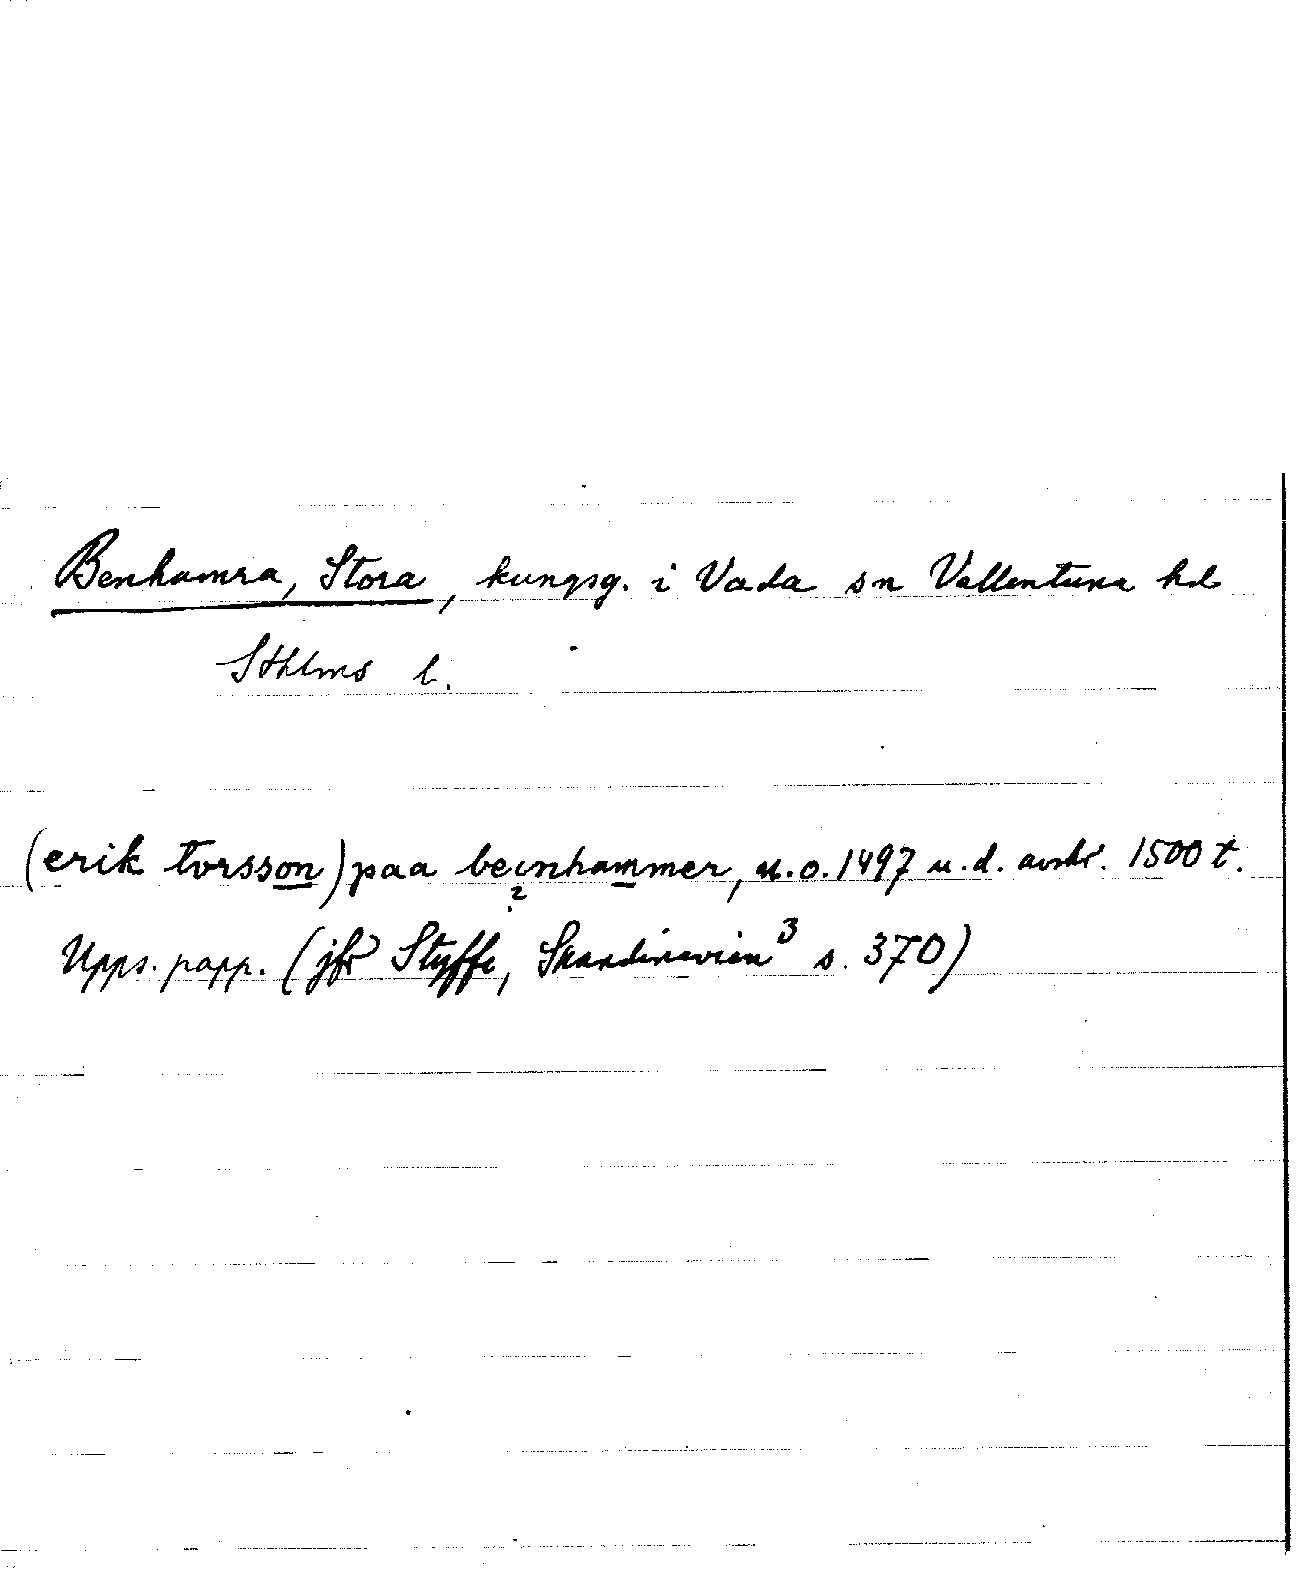 Benhamra, Stora, kungsg. i Vada sn Vallentuna hd
Sthlms l.
(erik torsson) paa beinhammer, u.o. 1497 u.d. avskr. 1500 t.
?
Upps. papp. (jfr Styffe, Skandinavien³ s. 370)